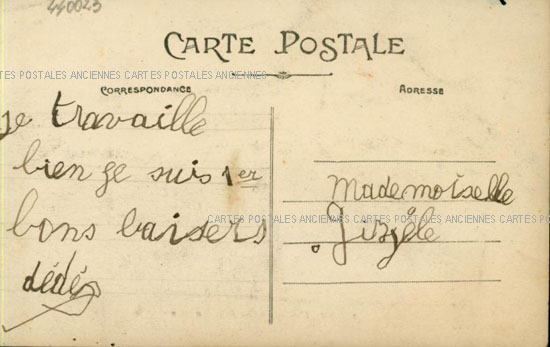 440023
CARTE POSTALE
CARTES POSTALES ANCIENNES CARTES POSTALES ANCIENNES
CORRESPONDANCE
ADRESSE
je travaille
bien je suis 1er
bons baisers
dédés
Mademoiselle
CARTES POSTALES ANCIENNES CARTES POSTALES ANCIENNES CARTES POST
Gizèle